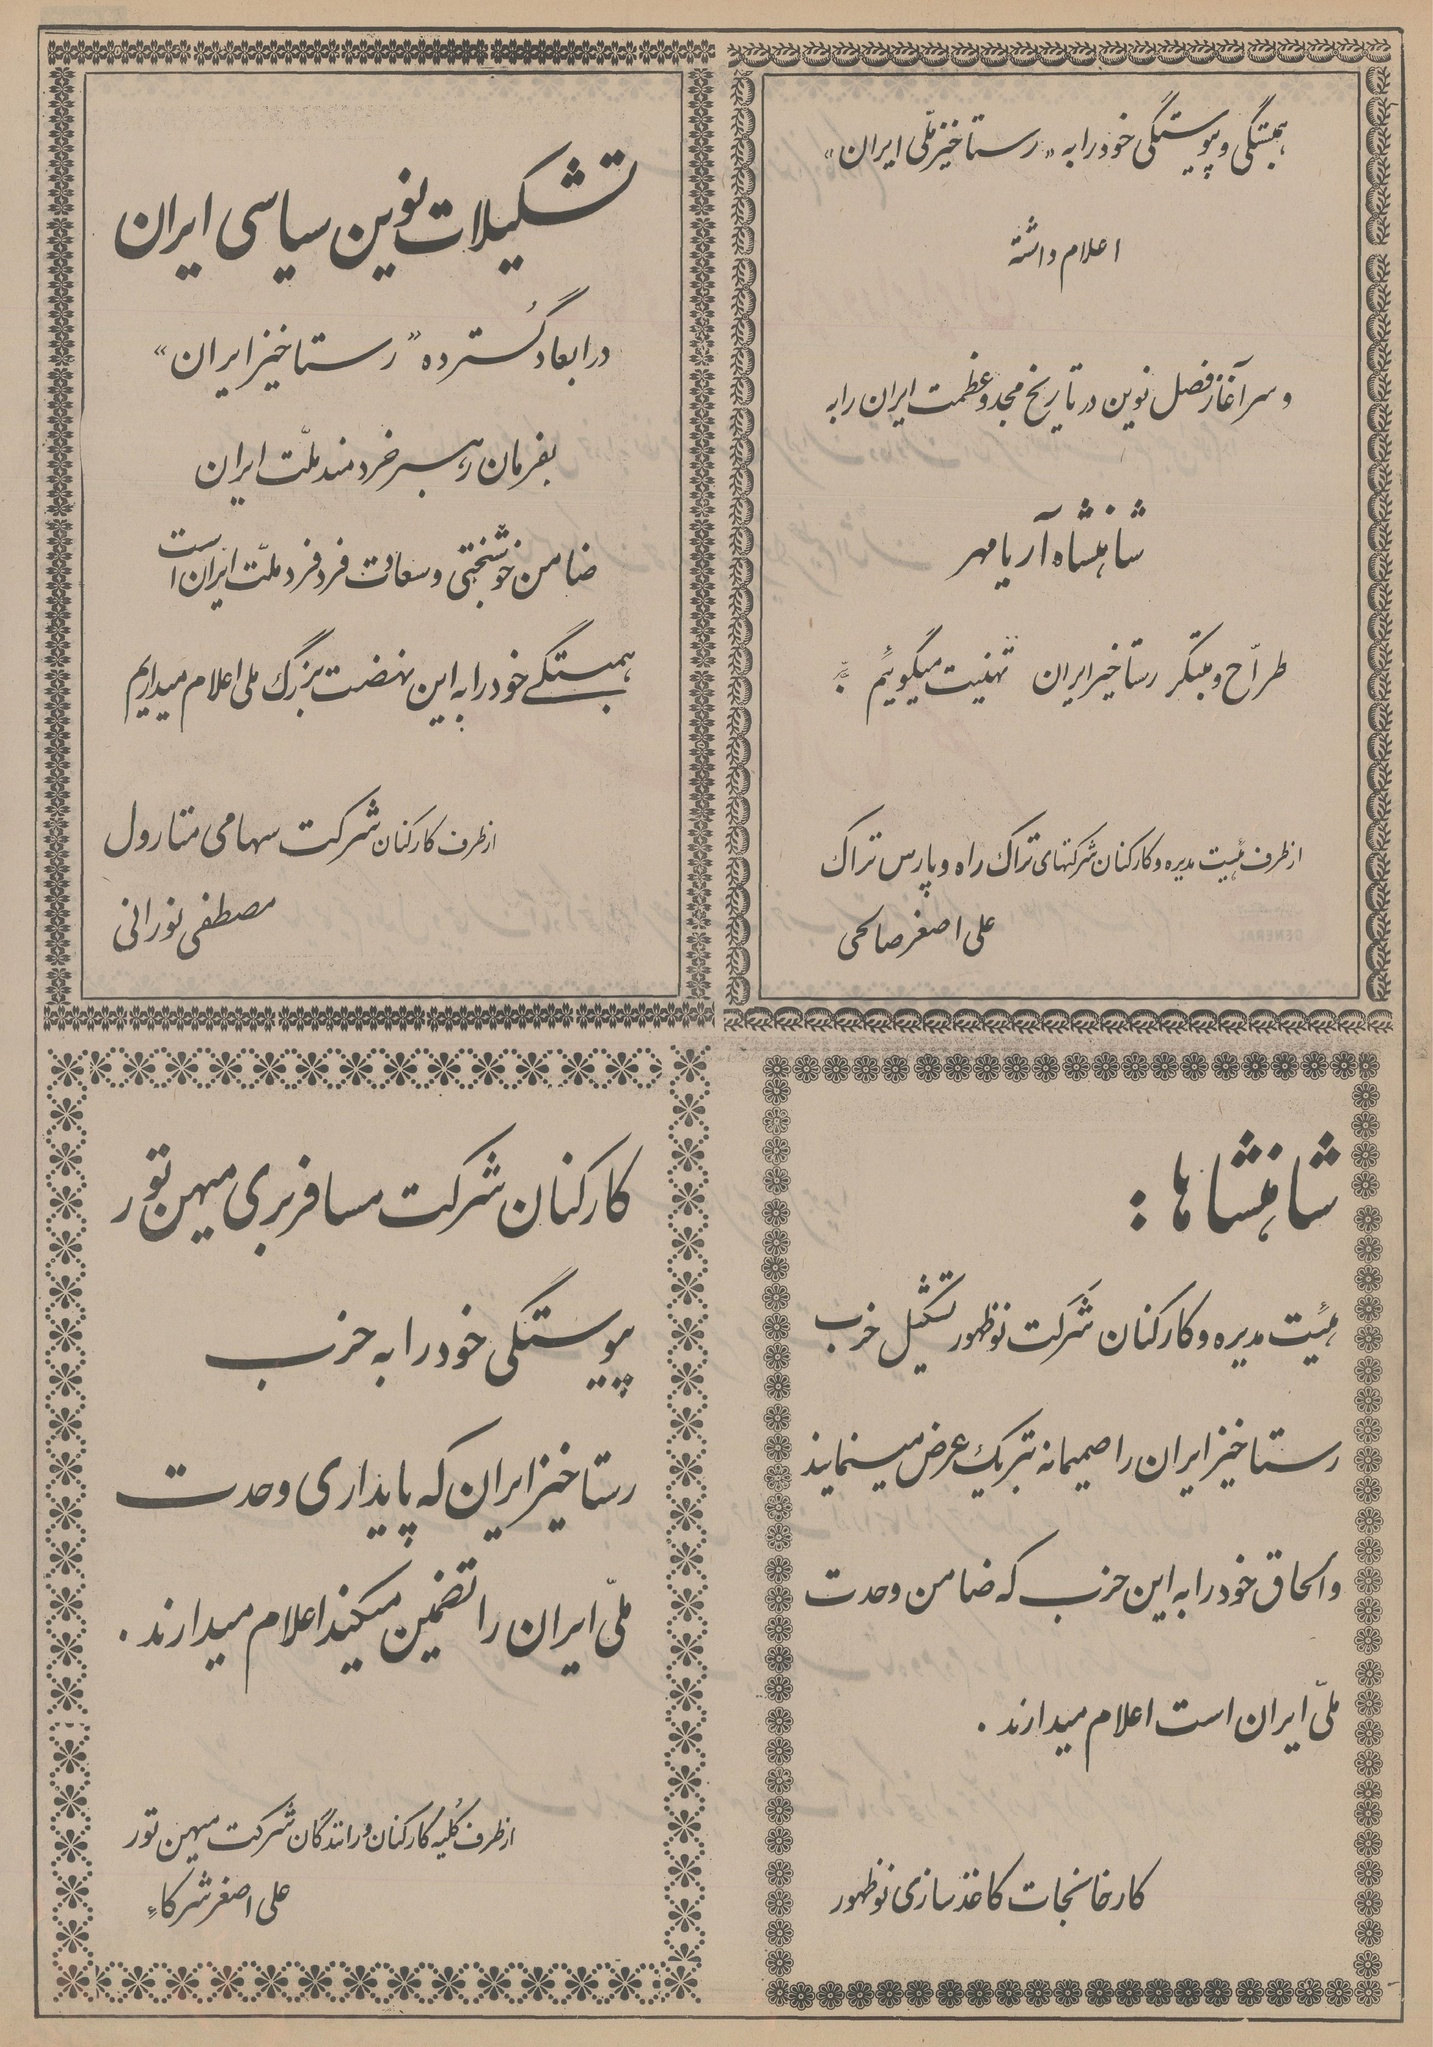 همبستگی و پیوستگی خود را به «رستاخیز ملّی ایران»
اعلام داشته
و سرآغاز فصل نوین در تاریخ مجد و عظمت ایران را به
شاهنشاه آریامهر
طرّاح و مبتکر رستاخیز ایران تهنیت میگوئیم :
از طرف هیئت مدیره و کارکنان شرکتهای تراک راه و پارس تراک
علی اصغر صالحی
تشکیلات نوین سیاسی ایران
در ابعاد گسترده «رستاخیز ایران»
بفرمان رهبر خردمند ملّت ایران
ضامن خوشبختی و سعادت فرد فرد ملّت ایران است
همبستگی خود را به این نهضت بزرگ ملی اعلام میداریم
از طرف کارکنان شرکت سهامی متارول
مصطفی نورانی
شاهنشاها :
هیئت مدیره و کارکنان شرکت نوظهور تشکیل حزب
رستاخیز ایران را صمیمانه تبریک عرض مینمایند
و الحاق خود را به این حزب که ضامن وحدت
ملّی ایران است اعلام میدارند .
کارخانجات کاغذسازی نوظهور
کارکنان شرکت مسافربری میهن تور
پیوستگی خود را به حزب
رستاخیز ایران که پایداری وحدت
ملّی ایران را تضمین میکند اعلام میدارند .
از طرف کلیه کارکنان و رانندگان شرکت میهن تور
علی اصغر شرکاء